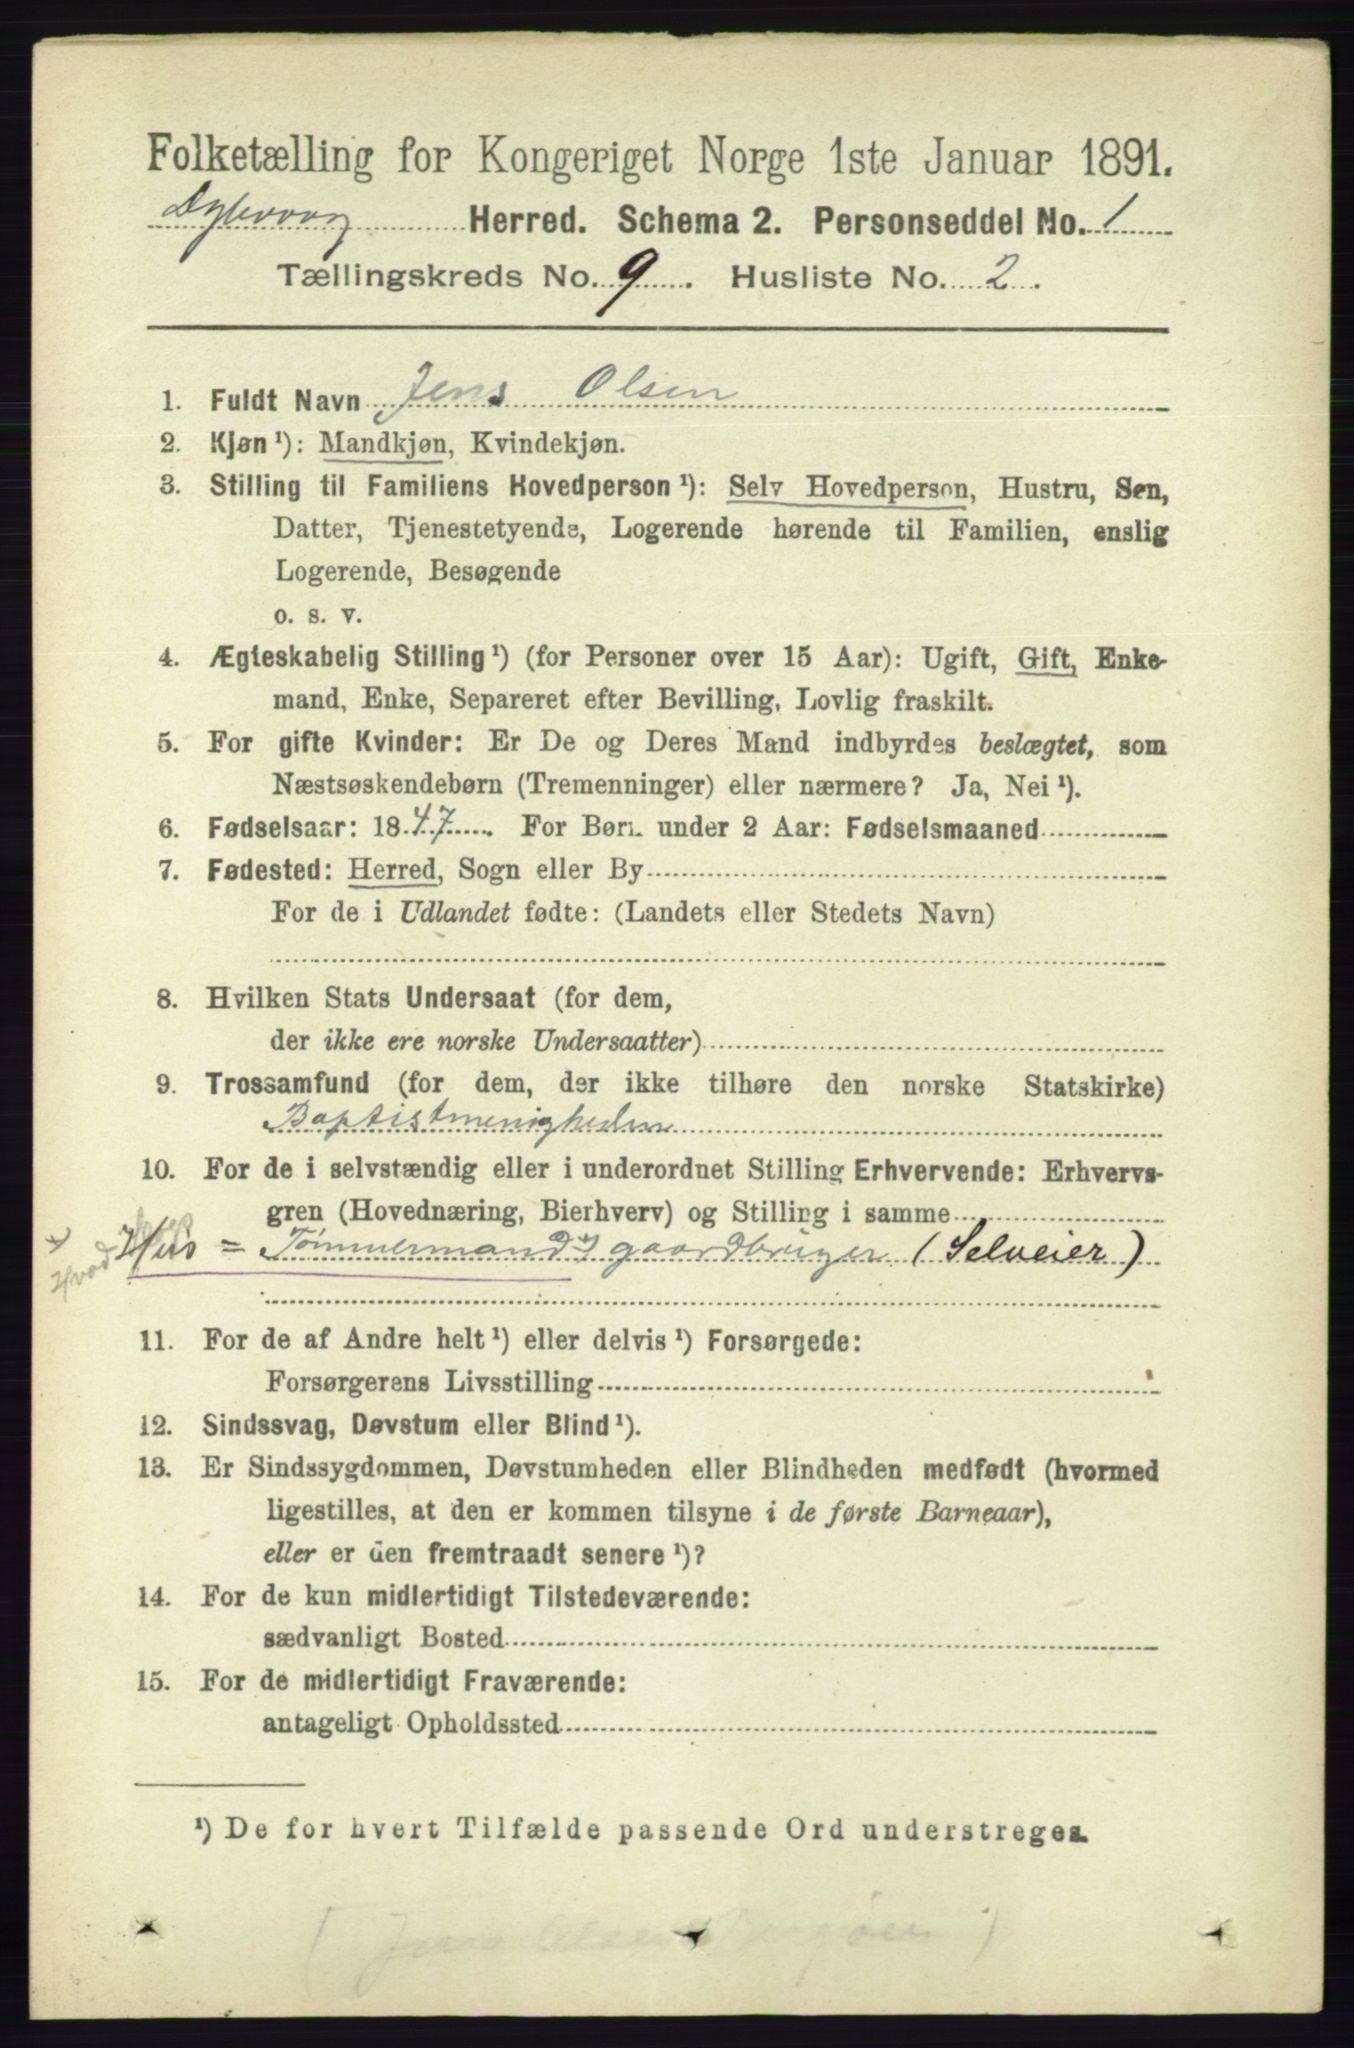 Folketælling for Kongeriget Norge 1ste Januar 1891.
Dybvaag Herred. Schema 2. Personseddel No. 1
Tællingskreds No. 9. Husliste No. 2.
1. Fuldt Navn Jens Olsen
2. Kjøn ¹): Mandkjøn, Kvindekjøn.
3. Stilling til Familiens Hovedperson ¹): Selv Hovedperson, Hustru, Søn,
Datter, Tjenestetyende, Logerende hørende til Familien, enslig
Logerende, Besøgende
o. s. v.
4. Ægteskabelig Stilling ¹) (for Personer over 15 Aar): Ugift, Gift, Enke-
mand, Enke, Separeret efter Bevilling, Lovlig fraskilt.
5. For gifte Kvinder: Er De og Deres Mand indbyrdes beslægtet, som
Næstsøskendebørn (Tremenninger) eller nærmere? Ja, Nei ¹).
6. Fødselsaar: 1847. For Børn under 2 Aar: Fødselsmaaned
7. Fødested: Herred, Sogn eller By
For de i Udlandet fødte: (Landets eller Stedets Navn)
8. Hvilken Stats Undersaat (for dem,
der ikke ere norske Undersaatter)
9. Trossamfund (for dem, der ikke tilhøre den norske Statskirke)
Baptistmenigheden
10. For de i selvstændig eller i underordnet Stilling Erhvervende: Erhvervs-
gren (Hovednæring, Bierhverv) og Stilling i samme
Hvad Hus = Tømmermand gaardbruger (Selveier)
11. For de af Andre helt ¹) eller delvis ¹) Forsørgede:
Forsørgerens Livsstilling
12. Sindssvag, Døvstum eller Blind ¹).
13. Er Sindssygdommen, Døvstumheden eller Blindheden medfødt (hvormed
ligestilles, at den er kommen tilsyne i de første Barneaar),
eller er den fremtraadt senere ¹)?
14. For de kun midlertidigt Tilstedeværende:
sædvanligt Bosted
15. For de midlertidigt Fraværende:
antageligt Opholdssted
¹) De for hvert Tilfælde passende Ord understreges.
(Jens Olsen)